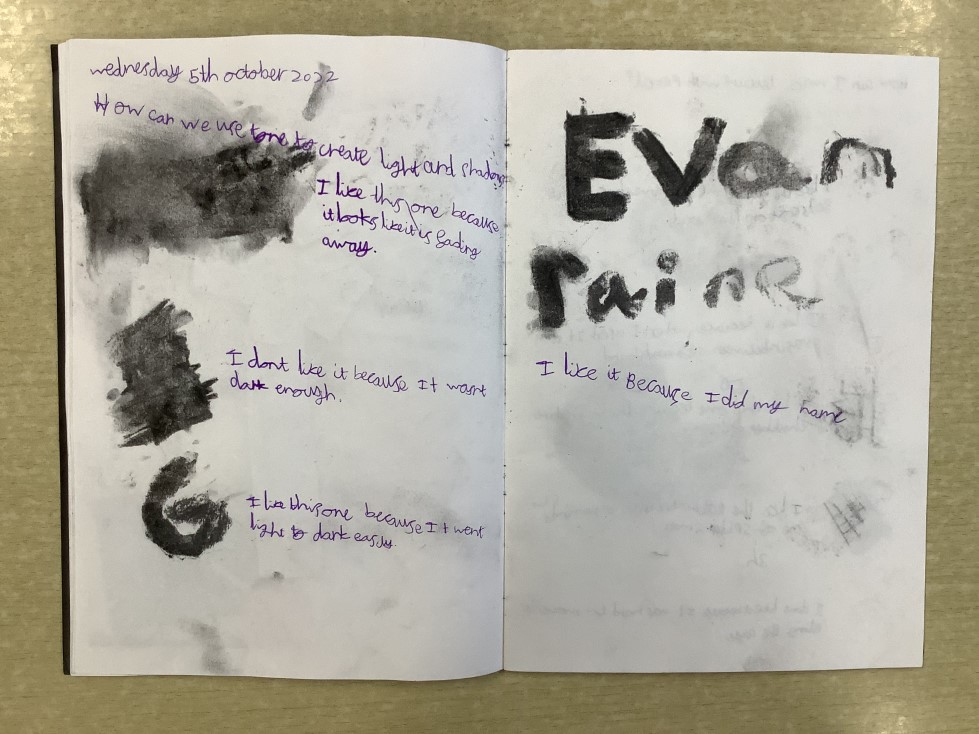 wednesday 5th october 2022
How can we use tone to create light and shadow
I like this one because
it looks like it is fading
away.
I dont like it because It wasnt
dark enough.
G
I like this one because It went
light to dark easly.
Evan
raine
I like it Because I did my name